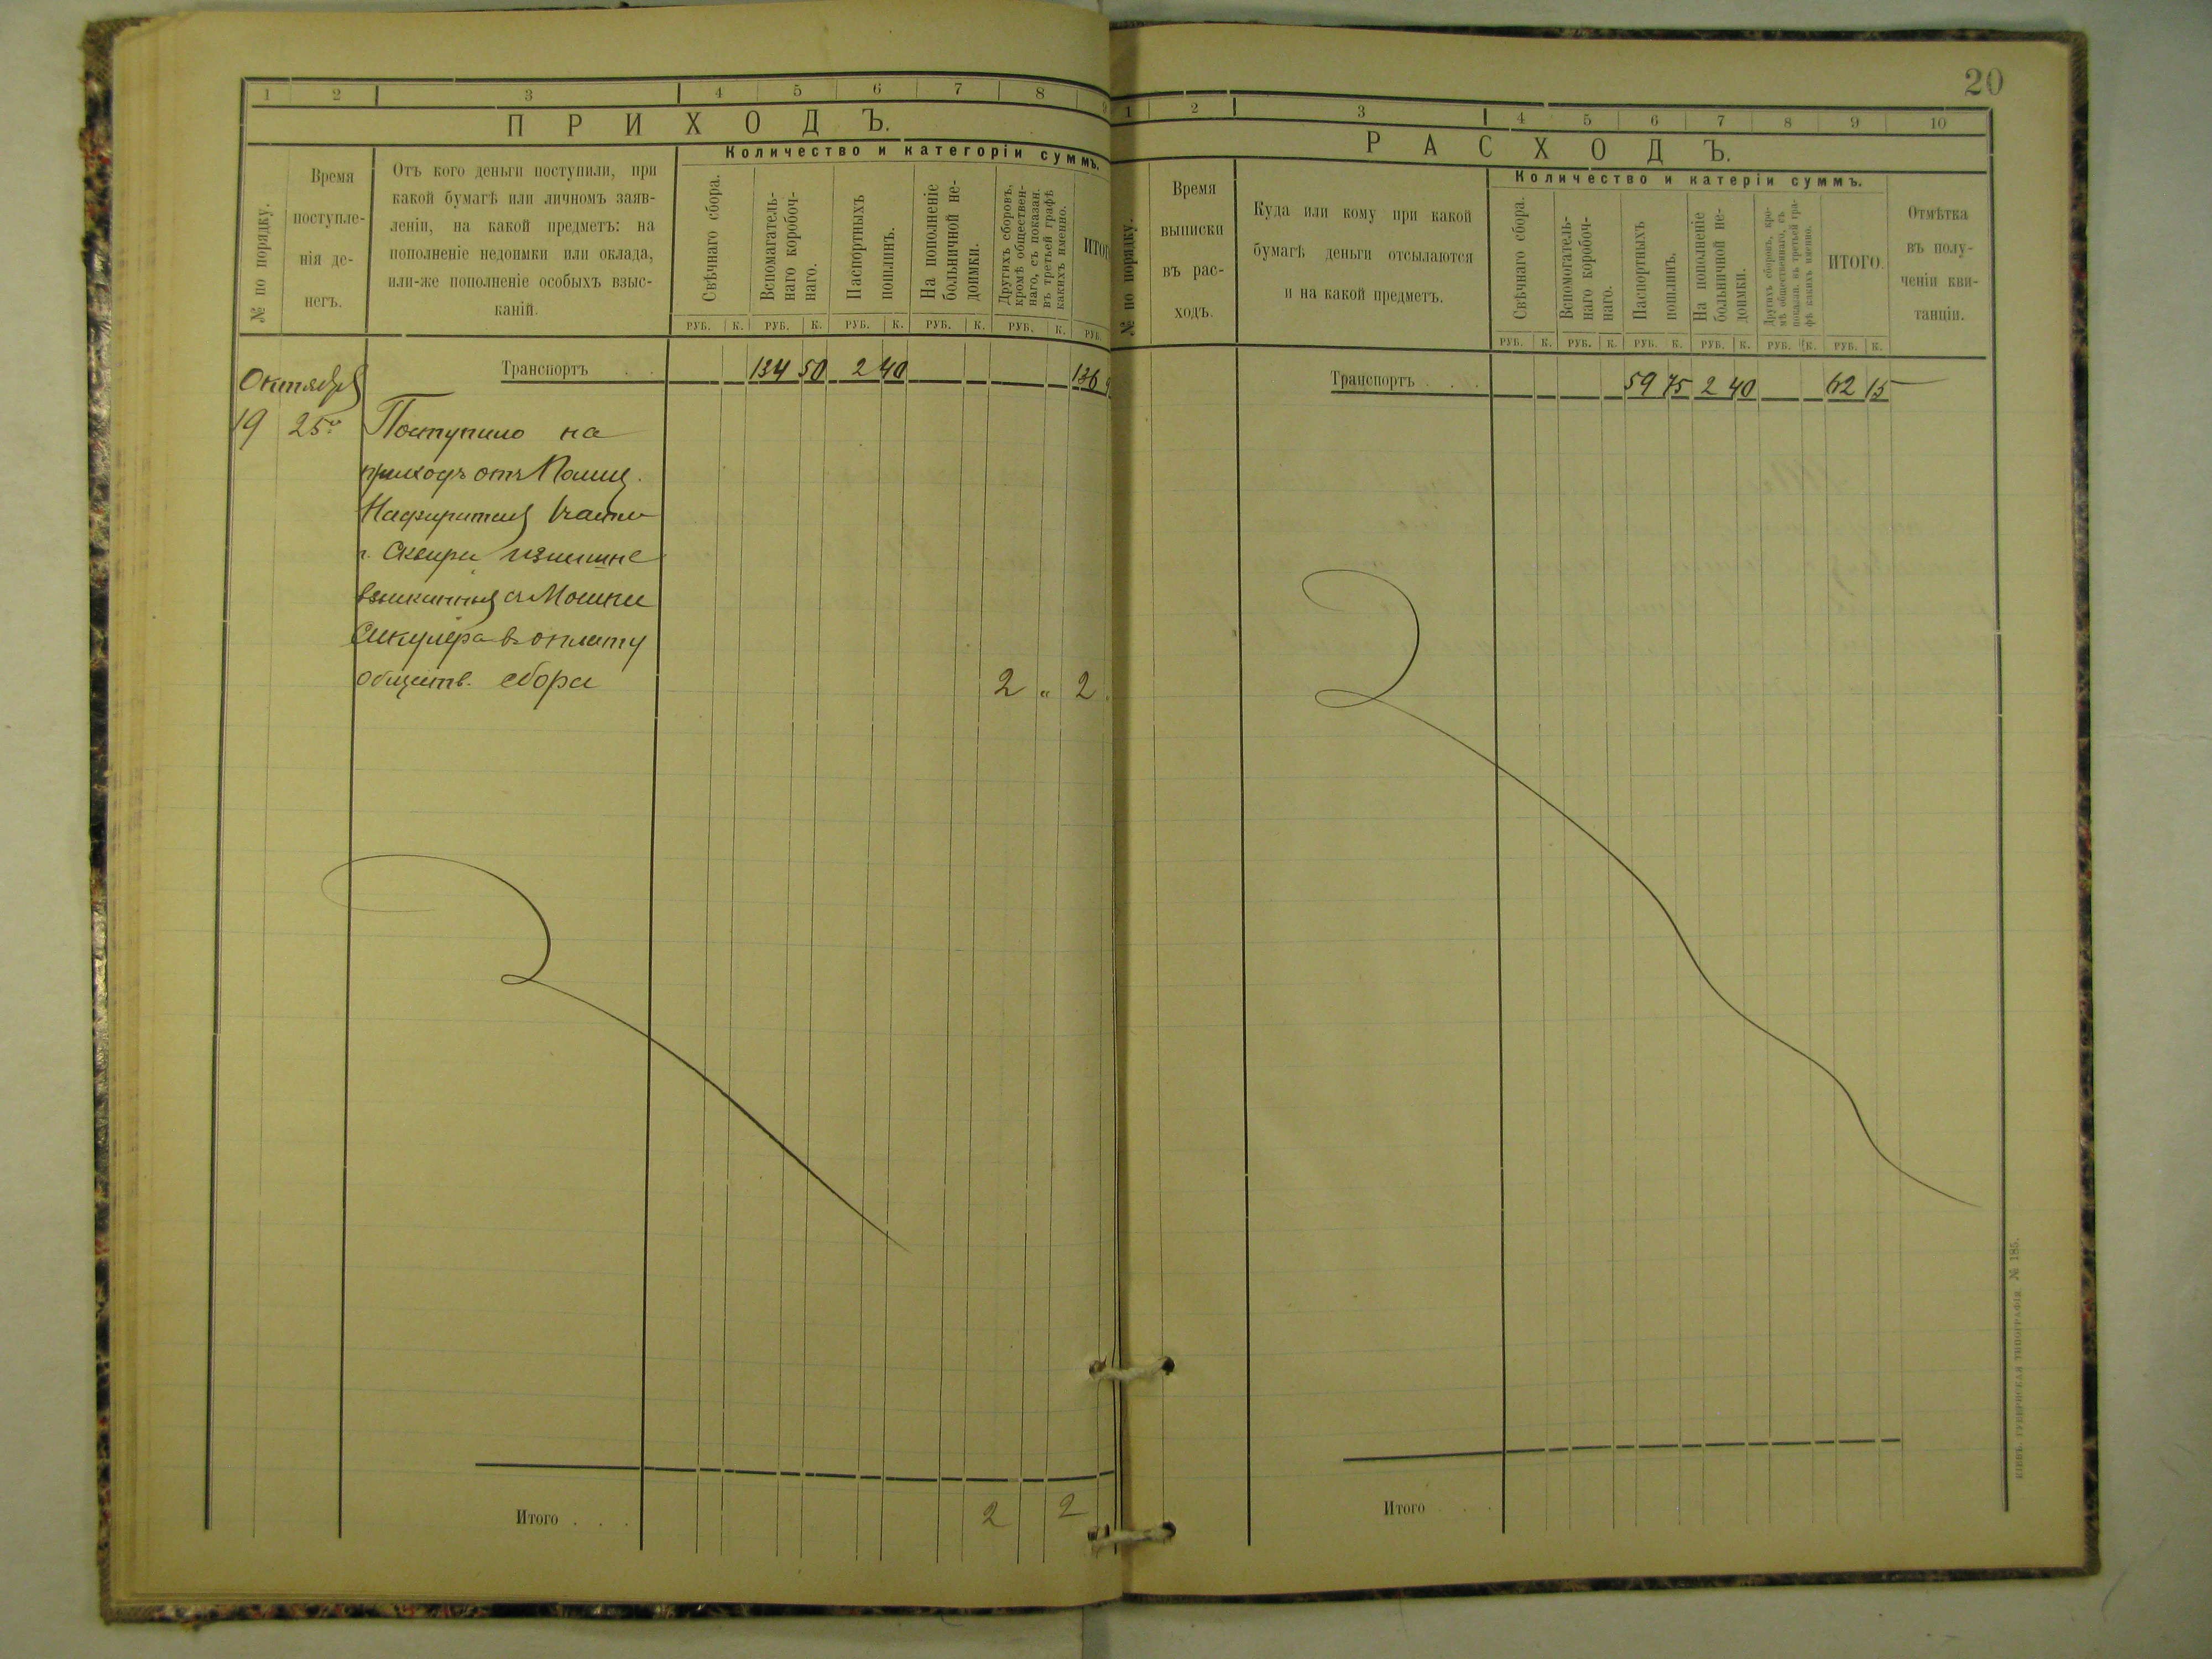 1 2 3 4 5 6 7 8 9
ПРИХОДЪ.
№ по порядку.
Время
поступле-
нія де-
негъ.
Отъ кого деньги поступили, при
какой бумагѣ или личномъ заяв-
леніи, на какой предметъ: на
пополненіе недоимки или оклада,
или-же пополненіе особыхъ взыс-
каній.
Количество и категоріи суммъ.
Свѣчнаго сбора.
Вспомагатель-
наго коробоч-
наго.
Паспортныхъ
пошлинъ.
На пополненіе
больничной не-
доимки.
Другихъ сборовъ,
кромѣ обществен-
наго, съ показан.
въ третьей графѣ
какихъ именно.
ИТОГ
РУБ. К. РУБ. К. РУБ. К. РУБ. К. РУБ. К. РУБ.
Транспортъ . . 134 50 2 40 136 9
Октября
19 25го Поступило на
приходъ отъ Полиц.
Надзирателя части
г. Сквиры излишне
взысканныя съ Мошки
въ оплату
обществ. сбора 2 " 2 "
Итого . . . 2 2
20
1 2 3 4 5 6 7 8 9 10
РАСХОДЪ.
№ по порядку.
Время
выписки
въ рас-
ходъ.
Куда или кому при какой
бумагѣ деньги отсылаются
и на какой предметъ.
Количество и катеріи суммъ.
Свѣчнаго сбора.
Вспомогатель-
наго коробоч-
наго.
Паспортныхъ
пошлинъ.
На пополненіе
больничной не-
доимки.
Другихъ сборовъ, кро-
мѣ общественнаго, съ
показан. въ третьей гра-
фѣ какихъ именно.
ИТОГО.
Отмѣтка
въ полу-
ченіи кви-
танціи.
РУБ. К. РУБ. К. РУБ. К. РУБ. К. РУБ. К. РУБ. К.
Транспортъ . . . 59 75 2 40 62 15
Итого . . .
КІЕВЪ. ГУБЕРНСКАЯ ТИПОГРАФІЯ. № 185.